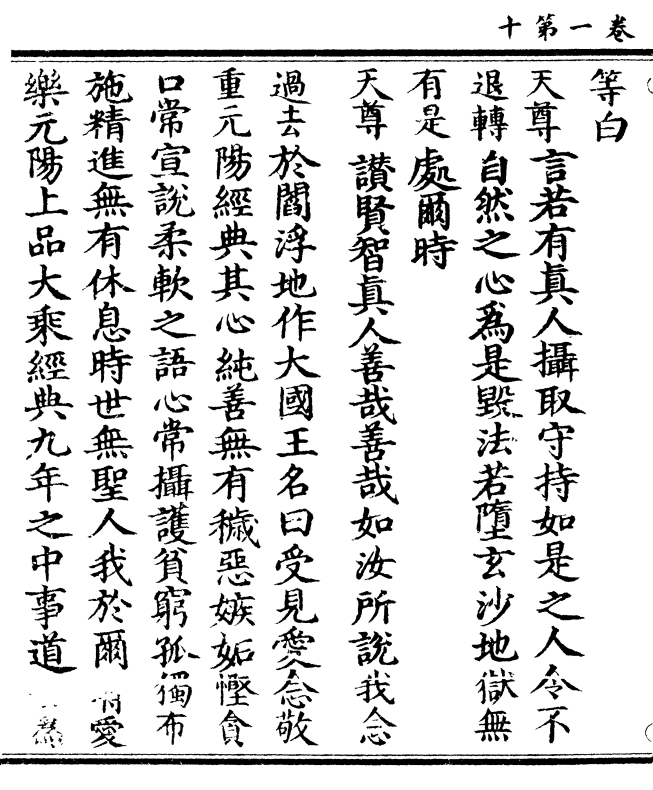 十第一卷
等白
天尊言若有眞人攝取守持如是之人令不
退轉自然之心爲是毀法若墮玄沙地獄無
有是處爾時
天尊讃賢智眞人善哉善哉如汝所說我念
過去於閻浮地作大國王名曰受見愛念敬
重元陽經典其心純善無有穢惡嫉妬慳貪
口常宣說柔軟之語心常攝護貧窮孤獨布
施精進無有休息時世無聖人我於爾時愛
樂元陽上品大乘經典九年之中事道